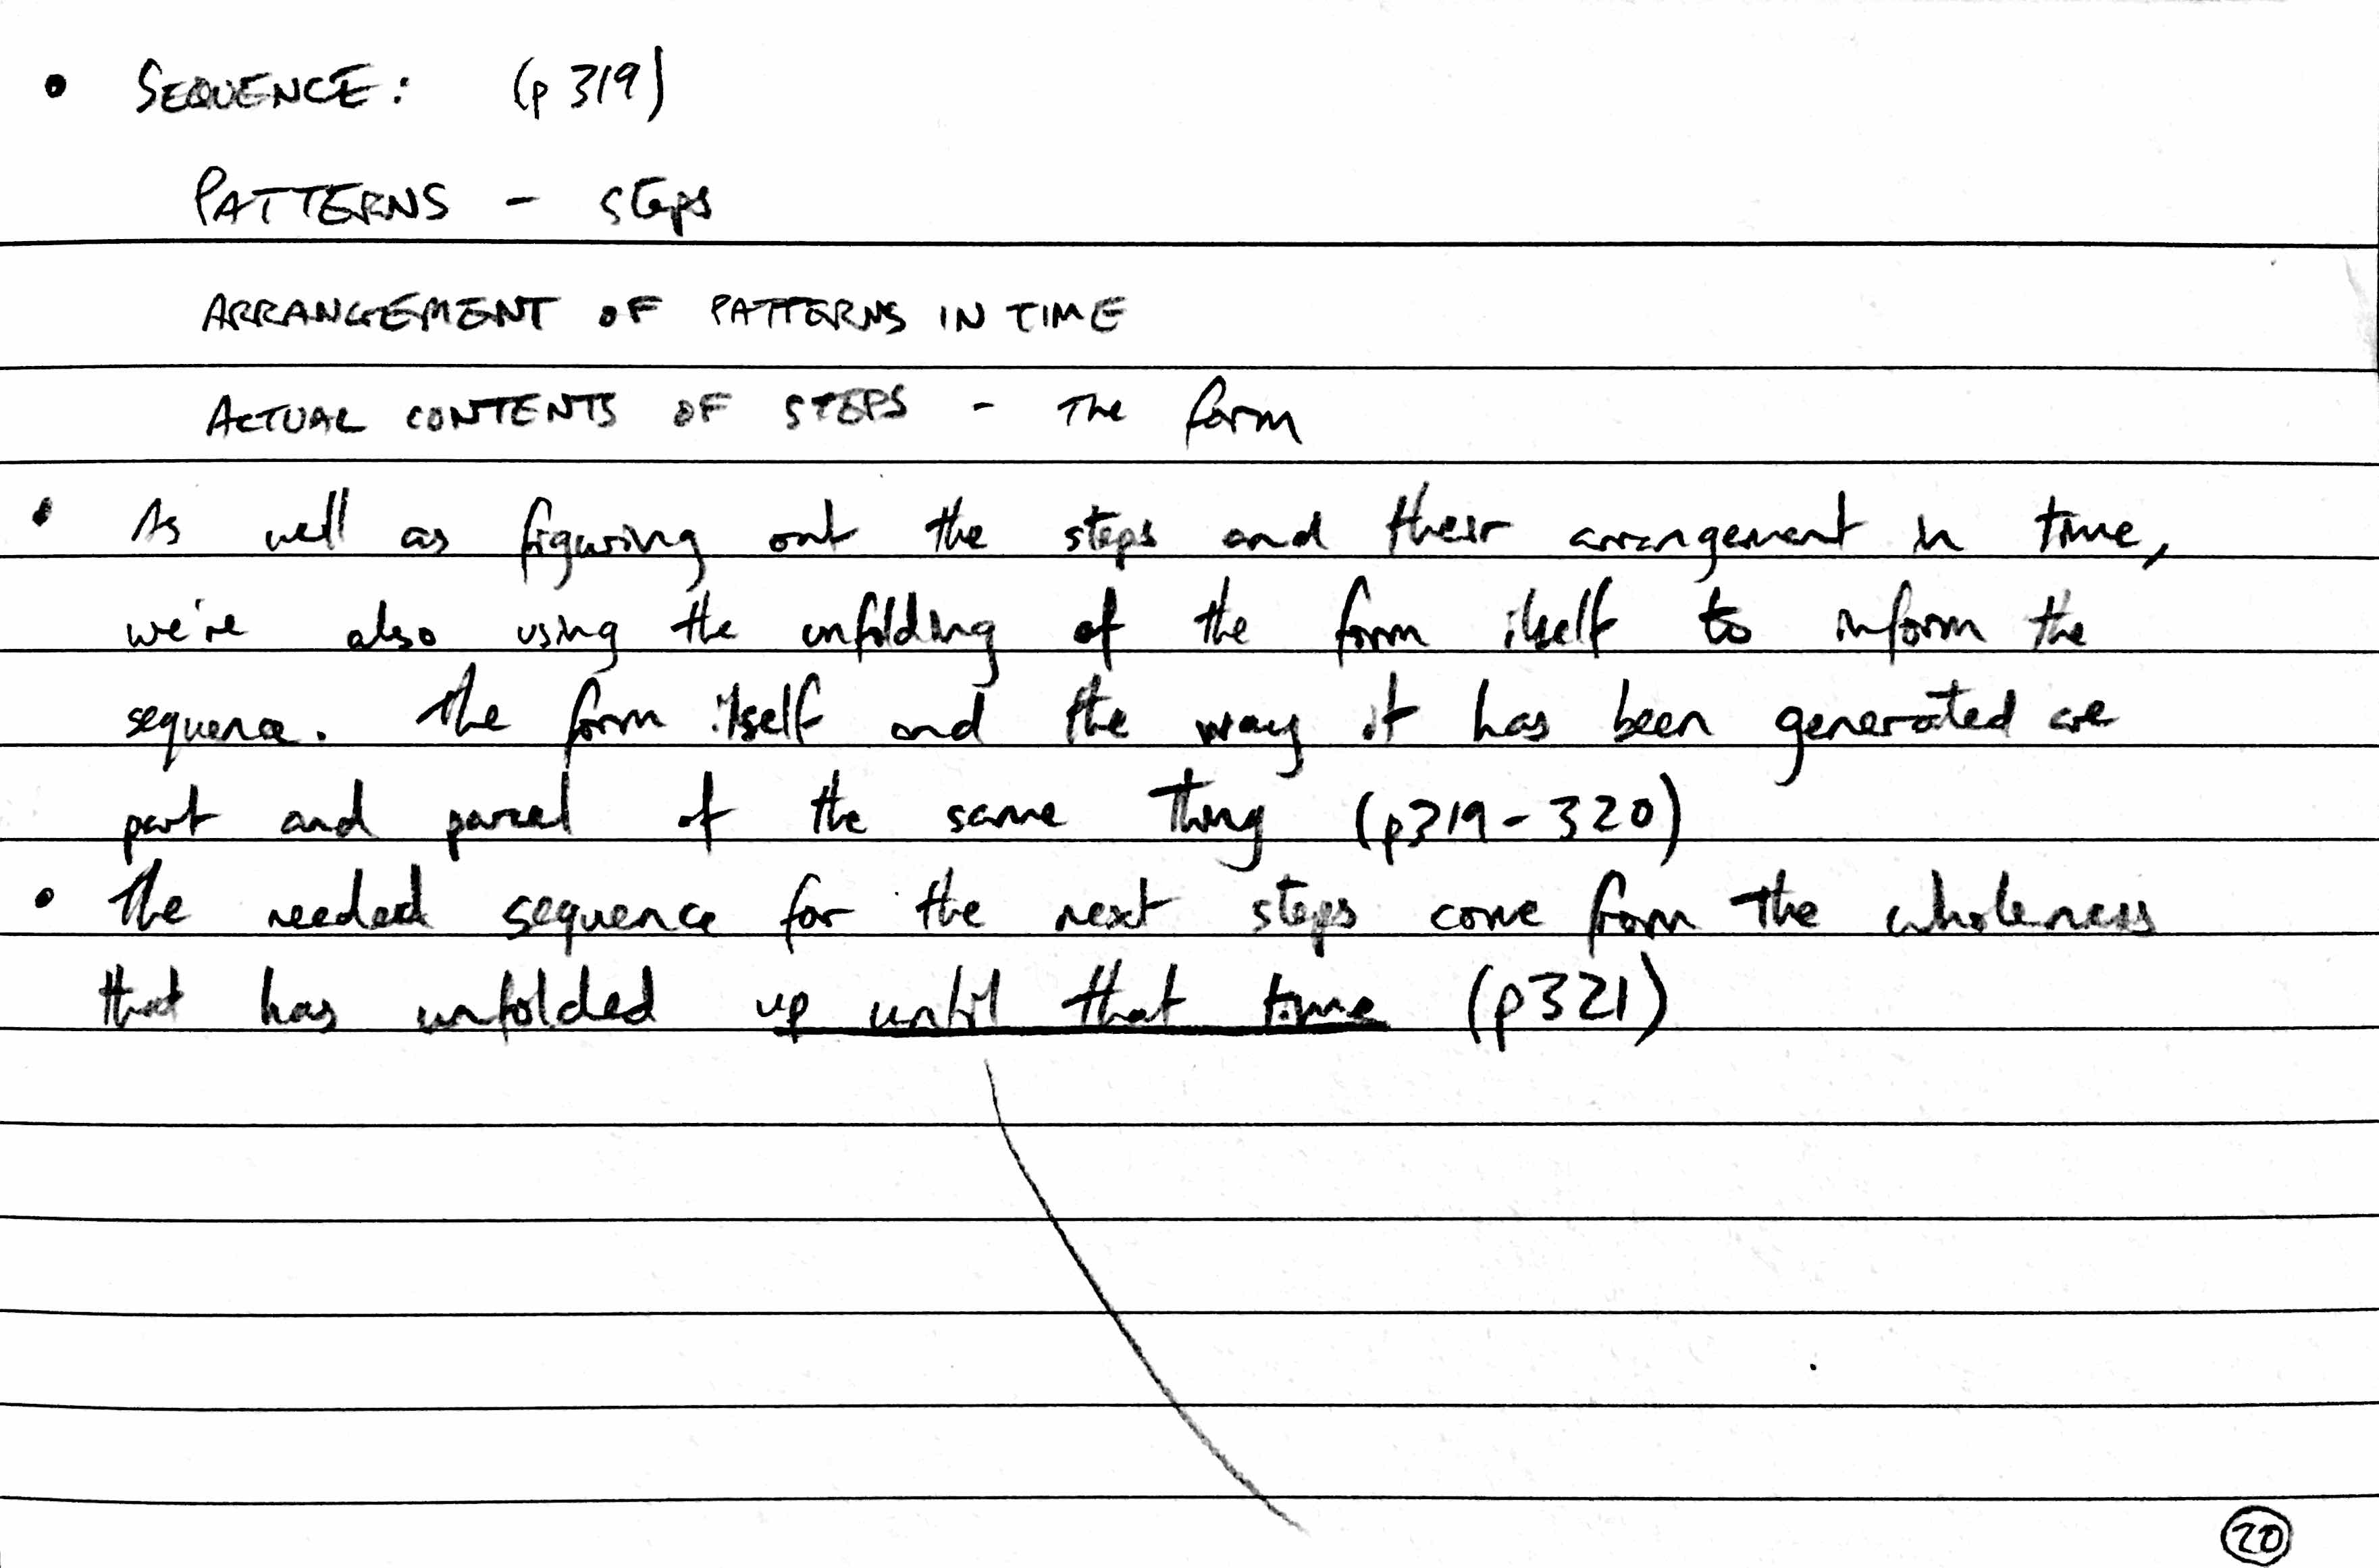 • SEQUENCE: (p 319)
PATTERNS - steps
ARRANGEMENT OF PATTERNS IN TIME
ACTUAL CONTENTS OF STEPS - The form
• As well as figuring out the steps and their arrangement in time,
we're also using the unfolding of the form itself to inform the
sequence. The form itself and the way it has been generated are
part and parcel of the same thing (p319-320)
• The needed sequence for the next steps come from the wholeness
that has unfolded up until that time (p321)
20